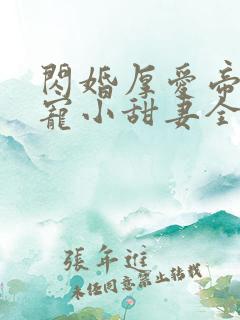 閃婚厚愛帝
寵小甜妻全
張年進
未經同意禁止轉載